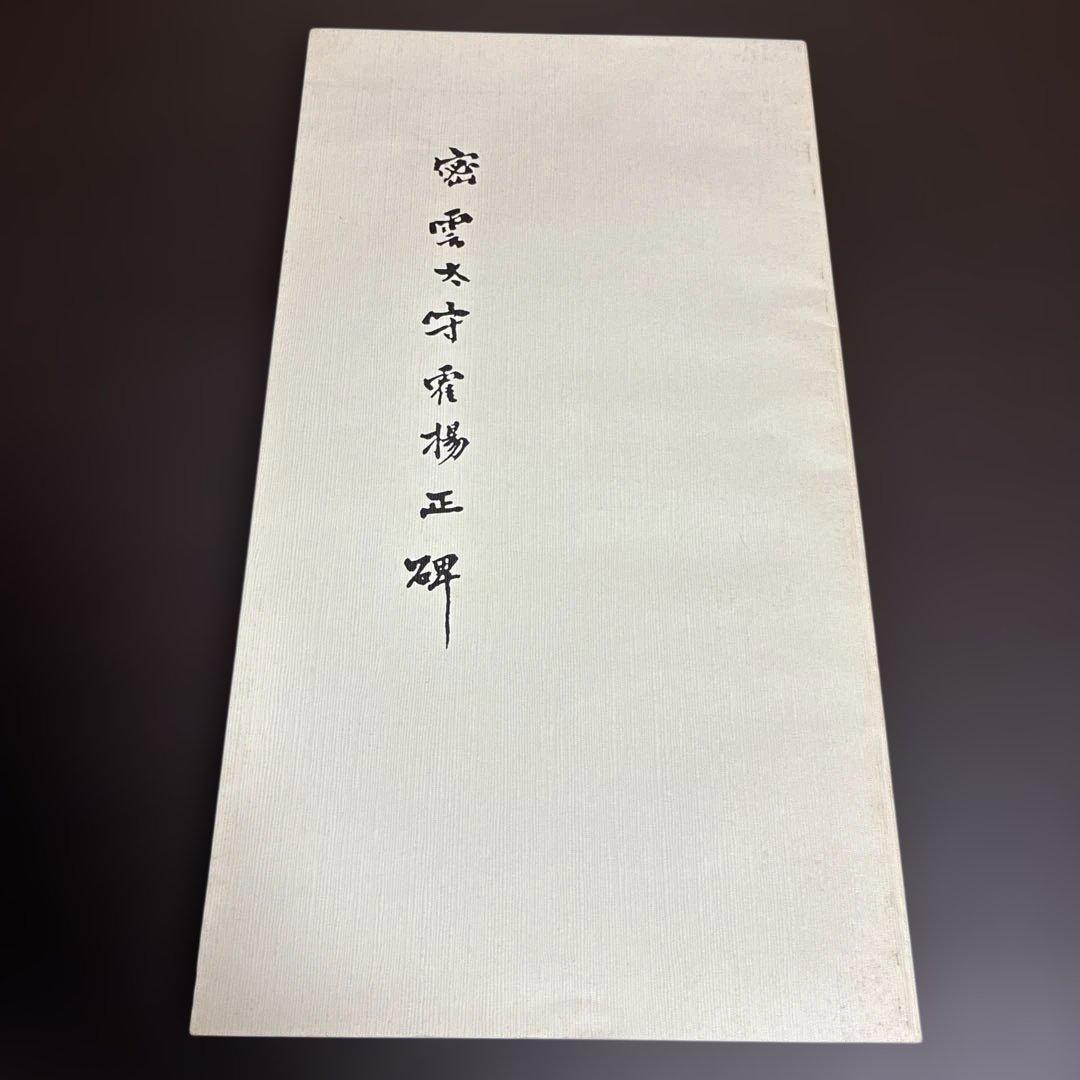 密雲太守霍揚正碑